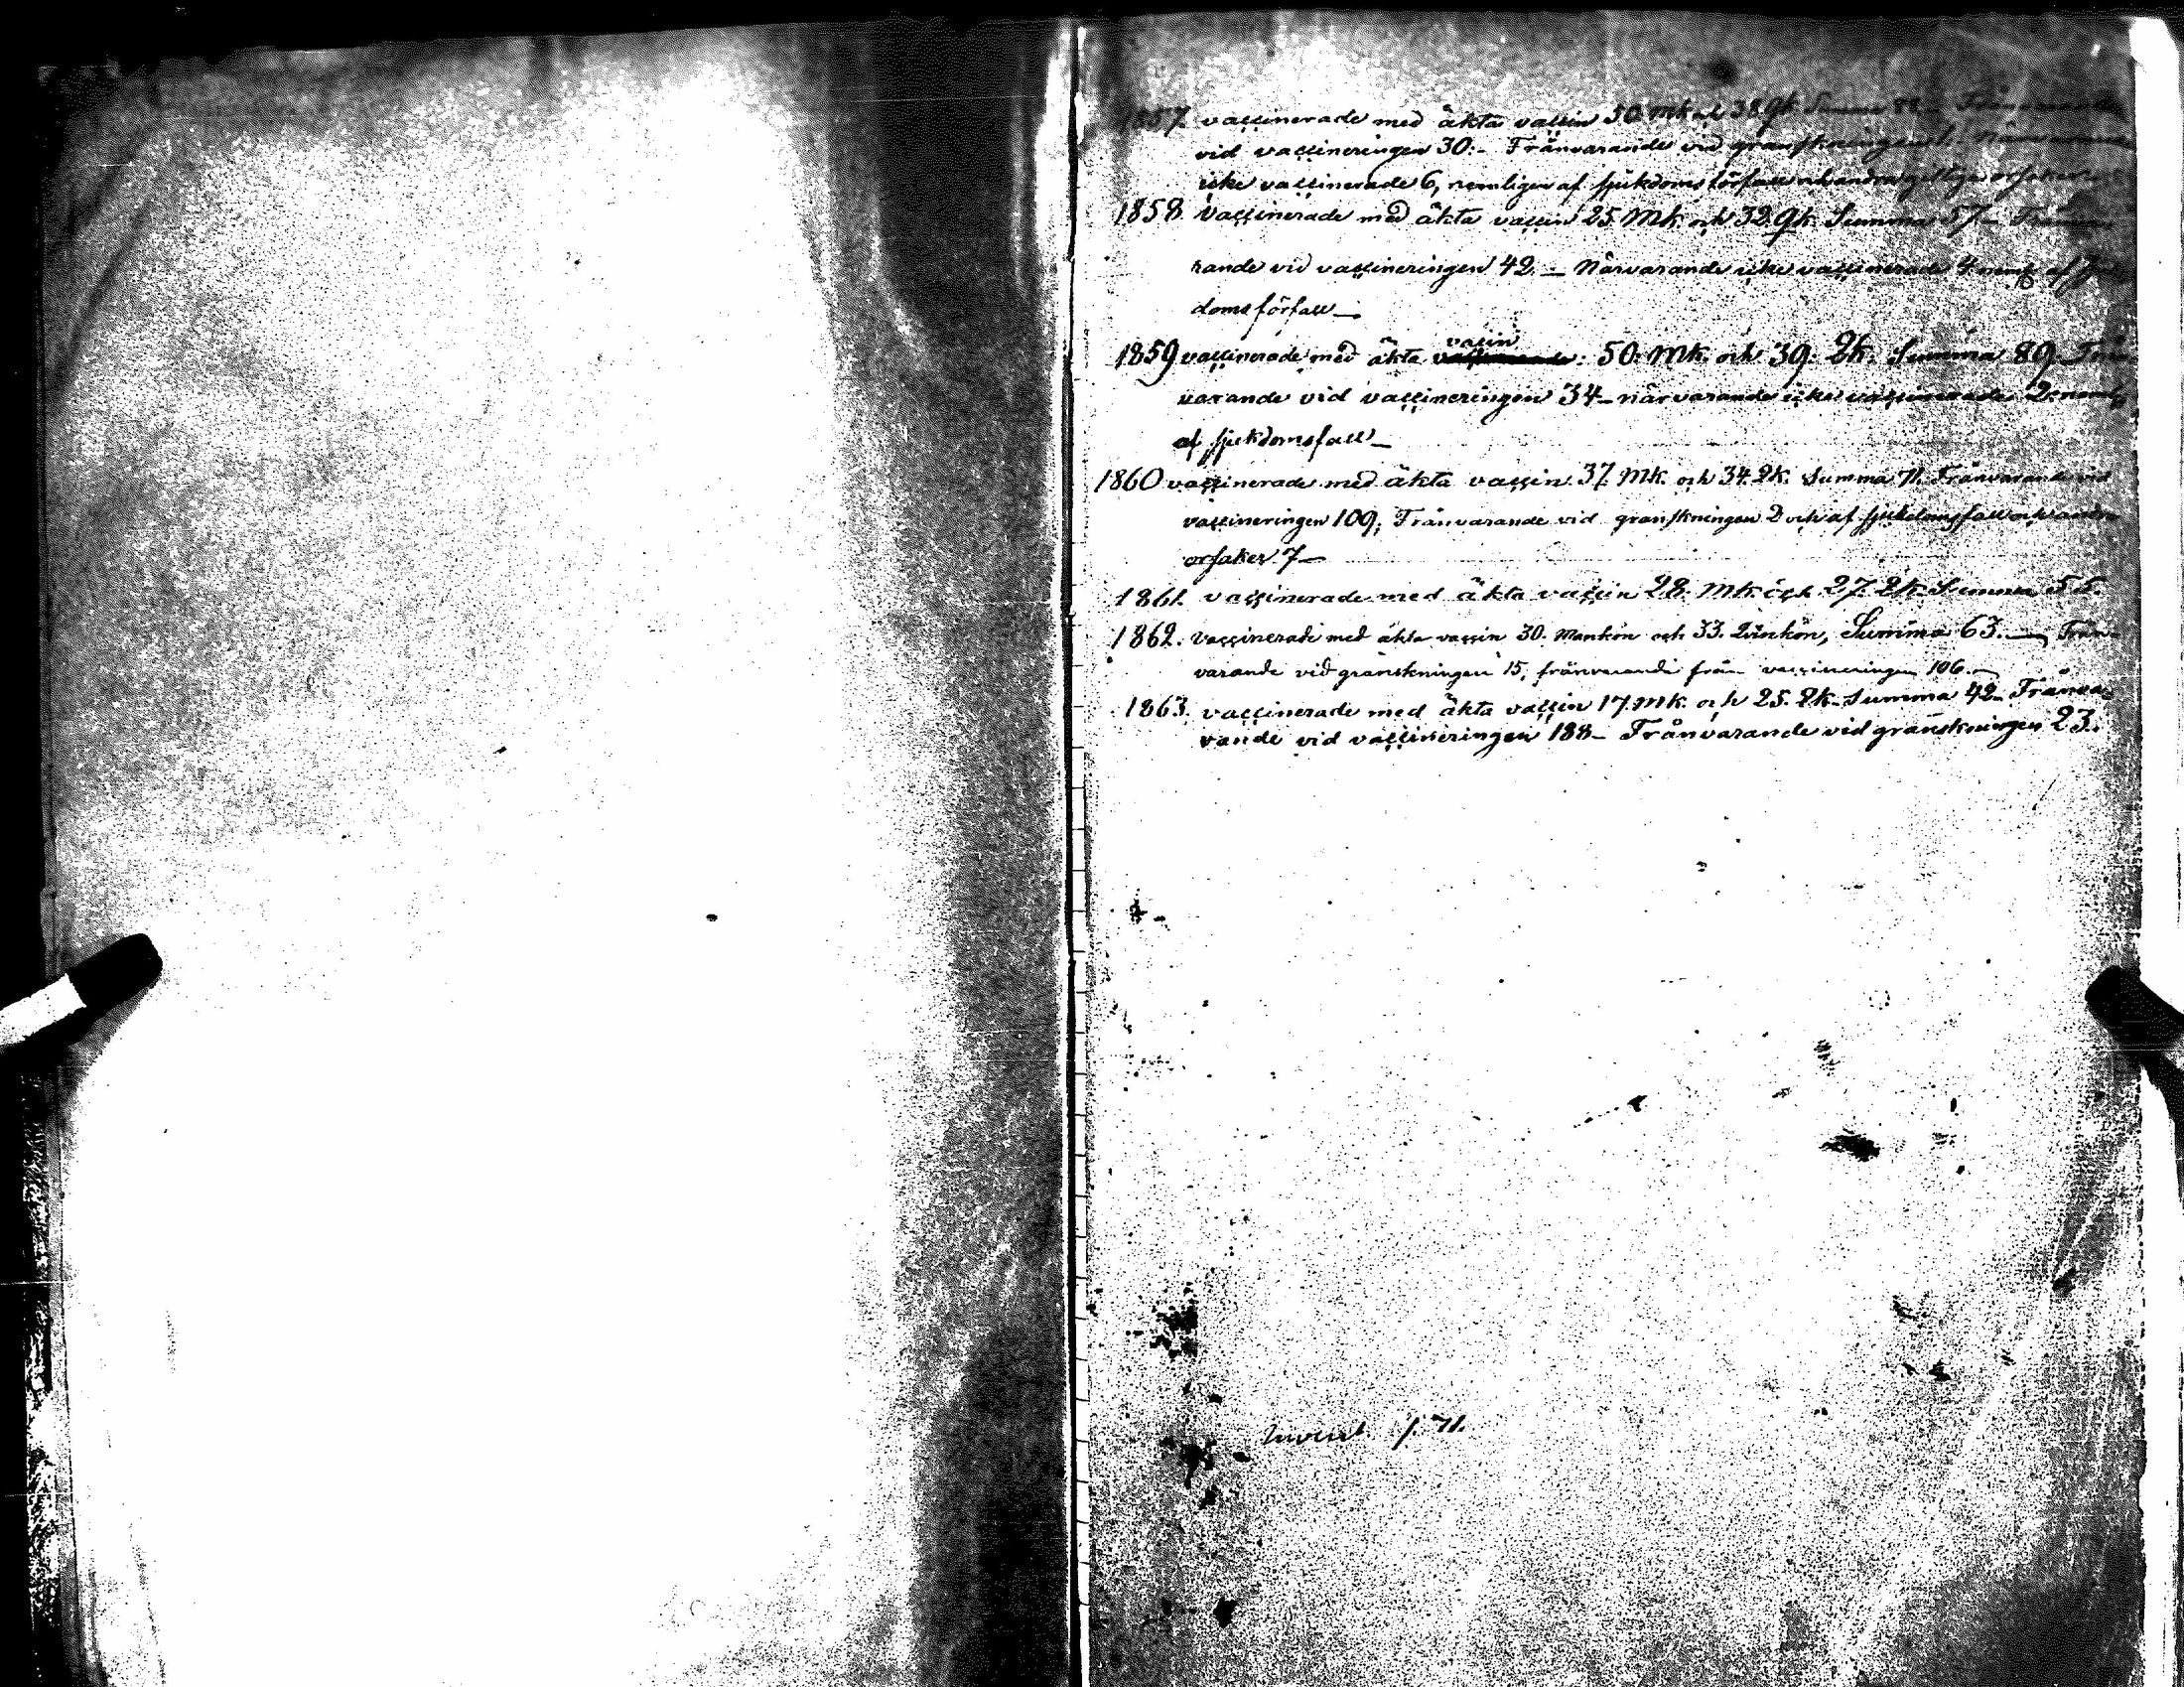 1857. vaccinerade med äkta vaccin 50 Mk och 38 Qk Summa 88 – Frånvarande
vid vaccineringen 30. – Frånvarande vid granskningen 1. Närvarande
icke vaccinerade 6, nemligen af sjukdoms förfall och andra giltiga orsaker
1858. Vaccinerade med äkta vaccin 25 Mk. och 32 Qk. Summa 57 – Frånva
rande vid vaccineringen 42 – Närvarande icke vaccinerade 4 neml. af
domsförfall –
1859 vaccinerade med äkta vaccin: 50. Mk. och 39. Qk. Summa 89. Från
varande vid vaccineringen 34 – närvarande icke vaccinerade 2. neml
af sjukdomsfall –
1860 vaccinerade med äkta vaccin. 37. Mk. och 34. Qk. Summa 71. Frånvarande vid
vaccineringen 109; Frånvarande vid granskningen 2 och af sjukdomsfall och andra
orsaker 7 –
1861. vaccinerade med äkta vaccin 28. Mk och 27. Qk. Summa 55.
1862. Vaccinerade med äkta vaccin 30. Mankön och 33. Qvinkön, Summa 63. – Från-
varande vid granskningen 15, frånvarande från vaccineringen 106. –
1863. vaccinerade med äkta vaccin 17. Mk. och 25. Qk. Summa 42 – Frånva-
rande vid vaccineringen 188 – Frånvarande vid granskningen 23.
Invent. p. 71.